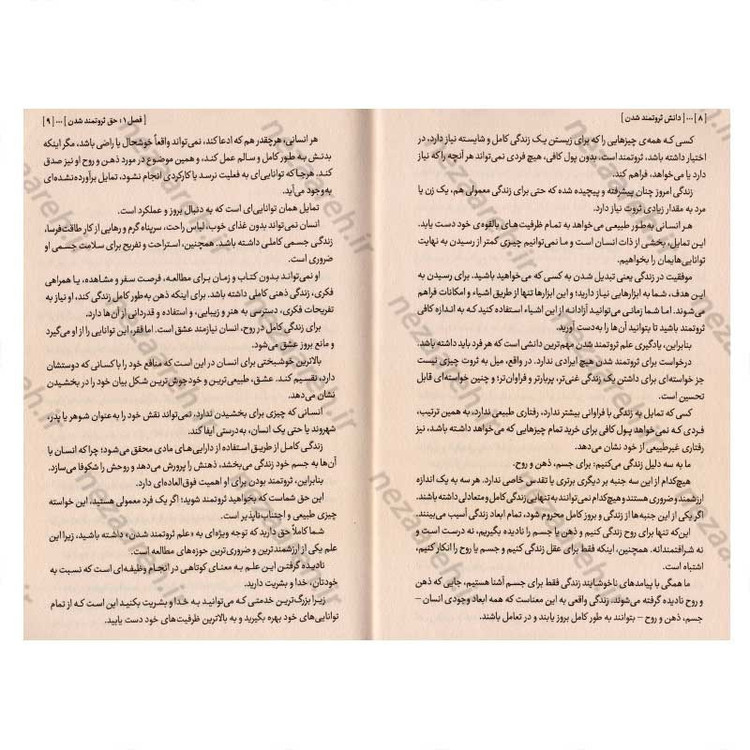 [ ۸ ] ... [ دانش ثروتمند شدن ]
کسی که همه‌ی چیزهایی را که برای زیستن یک زندگی کامل و شایسته نیاز دارد، در
اختیار داشته باشد، ثروتمند است. بدون پول کافی، هیچ فردی نمی‌تواند هر آنچه را که نیاز
دارد یا می‌خواهد، فراهم کند.
زندگی امروز چنان پیشرفته و پیچیده شده که حتی برای زندگی معمولی هم، یک زن یا
مرد به مقدار زیادی ثروت نیاز دارد.
هر انسانی به‌طور طبیعی می‌خواهد به تمام ظرفیت‌های بالقوه‌ی خود دست یابد.
این تمایل، بخشی از ذات انسان است و ما نمی‌توانیم چیزی کمتر از رسیدن به نهایت
توانایی‌هایمان را بخواهیم.
موفقیت در زندگی یعنی تبدیل شدن به کسی که می‌خواهید باشید. برای رسیدن به
این هدف، شما به ابزارهایی نیاز دارید؛ و این ابزارها تنها از طریق اشیاء و امکانات فراهم
می‌شوند. اما شما زمانی می‌توانید آزادانه از این اشیاء استفاده کنید که به اندازه کافی
ثروتمند باشید تا بتوانید آن‌ها را به‌دست آورید.
بنابراین، یادگیری علم ثروتمند شدن مهم‌ترین دانشی است که هر فرد باید داشته باشد.
درخواست برای ثروتمند شدن هیچ ایرادی ندارد. در واقع، میل به ثروت چیزی نیست
جز خواسته‌ای برای داشتن یک زندگی غنی‌تر، پربارتر و فراوان‌تر؛ و چنین خواسته‌ای قابل
تحسین است.
کسی که تمایل به زندگی با فراوانی بیشتر ندارد، رفتاری طبیعی ندارد. به همین ترتیب،
فردی که نمی‌خواهد پول کافی برای خرید تمام چیزهایی که می‌خواهد داشته باشد، نیز
رفتاری غیرطبیعی از خود نشان می‌دهد.
ما به سه دلیل زندگی می‌کنیم: برای جسم، ذهن و روح.
هیچ‌کدام از این سه جنبه بر دیگری برتری یا تقدس خاصی ندارد. هر سه به یک اندازه
ارزشمند و ضروری هستند و هیچ‌کدام نمی‌توانند به‌تنهایی زندگی کامل و متعادلی داشته باشند.
اگر یکی از این جنبه‌ها از زندگی و بروز کامل محروم شود، تمام ابعاد زندگی آسیب می‌بینند.
این‌که تنها برای روح زندگی کنیم و ذهن یا جسم را نادیده بگیریم، نه درست است و
نه شرافتمندانه. همچنین، اینکه فقط برای عقل زندگی کنیم و جسم یا روح را انکار کنیم،
اشتباه است.
ما همگی با پیامدهای ناخوشایند زندگی فقط برای جسم آشنا هستیم، جایی که ذهن
و روح نادیده گرفته می‌شوند. زندگی واقعی به این معناست که همه ابعاد وجودی انسان –
جسم، ذهن و روح – بتوانند به طور کامل بروز یابند و در تعامل باشند.
[ فصل ۱؛ حق ثروتمند شدن ] ... [ ۹ ]
هر انسانی، هرچقدر هم که ادعا کند، نمی‌تواند واقعاً خوشحال یا راضی باشد، مگر اینکه
بدنش به طور کامل و سالم عمل کند، و همین موضوع در مورد ذهن و روح او نیز صدق
کند. هرجا که توانایی‌ای به فعلیت نرسد یا کارکردی انجام نشود، تمایل برآورده‌نشده‌ای
به‌وجود می‌آید.
تمایل همان توانایی‌ای است که به دنبال بروز و عملکرد است.
انسان نمی‌تواند بدون غذای خوب، لباس راحت، سرپناه گرم و رهایی از کار طاقت‌فرسا،
زندگی جسمی کاملی داشته باشد. همچنین، استراحت و تفریح برای سلامت جسمی او
ضروری است.
او نمی‌تواند بدون کتاب و زمان برای مطالعه، فرصت سفر و مشاهده، یا همراهی
فکری، زندگی ذهنی کاملی داشته باشد. برای اینکه ذهن به‌طور کامل زندگی کند، او نیاز به
تفریحات فکری، دسترسی به هنر و زیبایی، و استفاده و قدردانی از آن‌ها دارد.
برای زندگی کامل در روح، انسان نیازمند عشق است. اما فقر، این توانایی را از او می‌گیرد
و مانع بروز عشق می‌شود.
بالاترین خوشبختی برای انسان در این است که منافع خود را با کسانی که دوستشان
دارد، تقسیم کند. عشق، طبیعی‌ترین و خودجوش‌ترین شکل بیان خود را در بخشیدن
نشان می‌دهد.
انسانی که چیزی برای بخشیدن ندارد، نمی‌تواند نقش خود را به‌عنوان شوهر یا پدر،
شهروند یا حتی یک انسان، به‌درستی ایفا کند.
زندگی کامل از طریق استفاده از دارایی‌های مادی محقق می‌شود؛ چرا که انسان با
آن‌ها به جسم خود زندگی می‌بخشد، ذهنش را پرورش می‌دهد و روحش را شکوفا می‌سازد.
بنابراین، ثروتمند بودن برای او اهمیت فوق‌العاده‌ای دارد.
این حق شماست که بخواهید ثروتمند شوید؛ اگر یک فرد معمولی هستید، این خواسته
چیزی طبیعی و اجتناب‌ناپذیر است.
شما کاملاً حق دارید که توجه ویژه‌ای به «علم ثروتمند شدن» داشته باشید، زیرا این
علم یکی از ارزشمندترین و ضروری‌ترین حوزه‌های مطالعه است.
نادیده گرفتن این علم به معنای کوتاهی در انجام وظیفه‌ای است که نسبت به
خودتان، خدا و بشریت دارید.
زیرا بزرگ‌ترین خدمتی که می‌توانید به خدا و بشریت بکنید این است که از تمام
توانایی‌های خود بهره بگیرید و به بالاترین ظرفیت‌های خود دست یابید.
nezaareh.ir